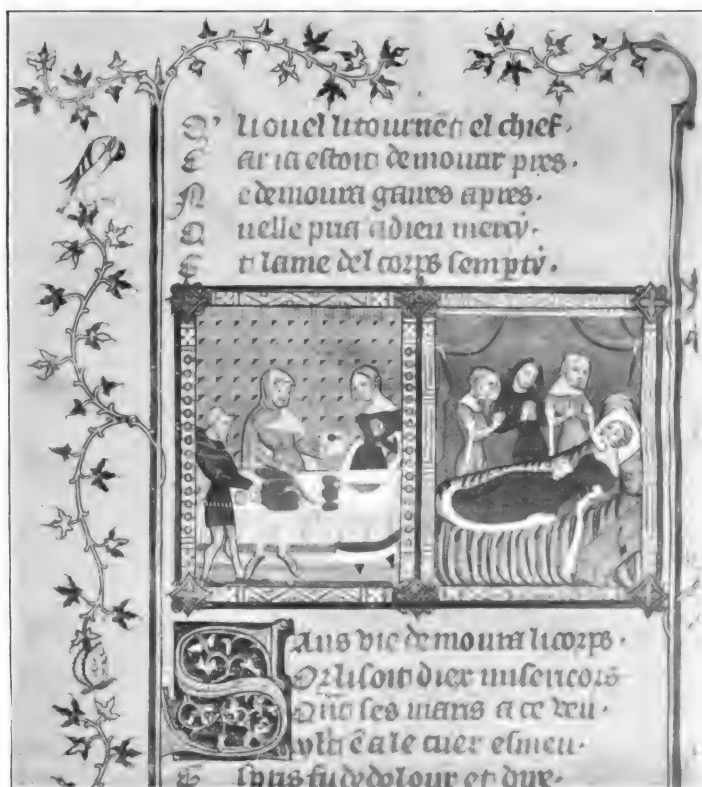 Q' li ouel li tournēt el chief.
C ar ia estoit de mouur pres.
N e demoura gaires apres.
Q uelle pria a dieu mercy.
E t lame del corps sempty.
S ans vie demoura li corps.
Or li soit diex misericors
Quāt ses maris a ce veu
le cuer esmeu.
E spris fu de dolour et dyre.